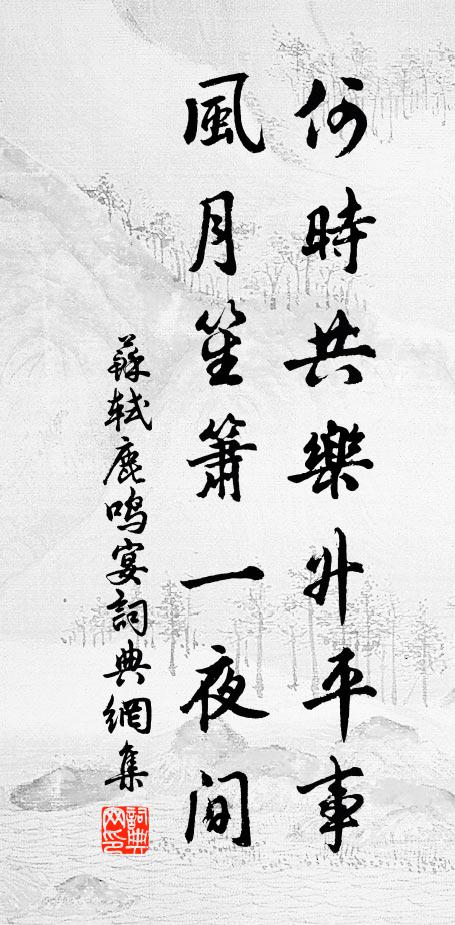 何時共樂升平事
風月笙簫一夜間
蘇軾鹿鳴宴詞典網集
詞典
网印